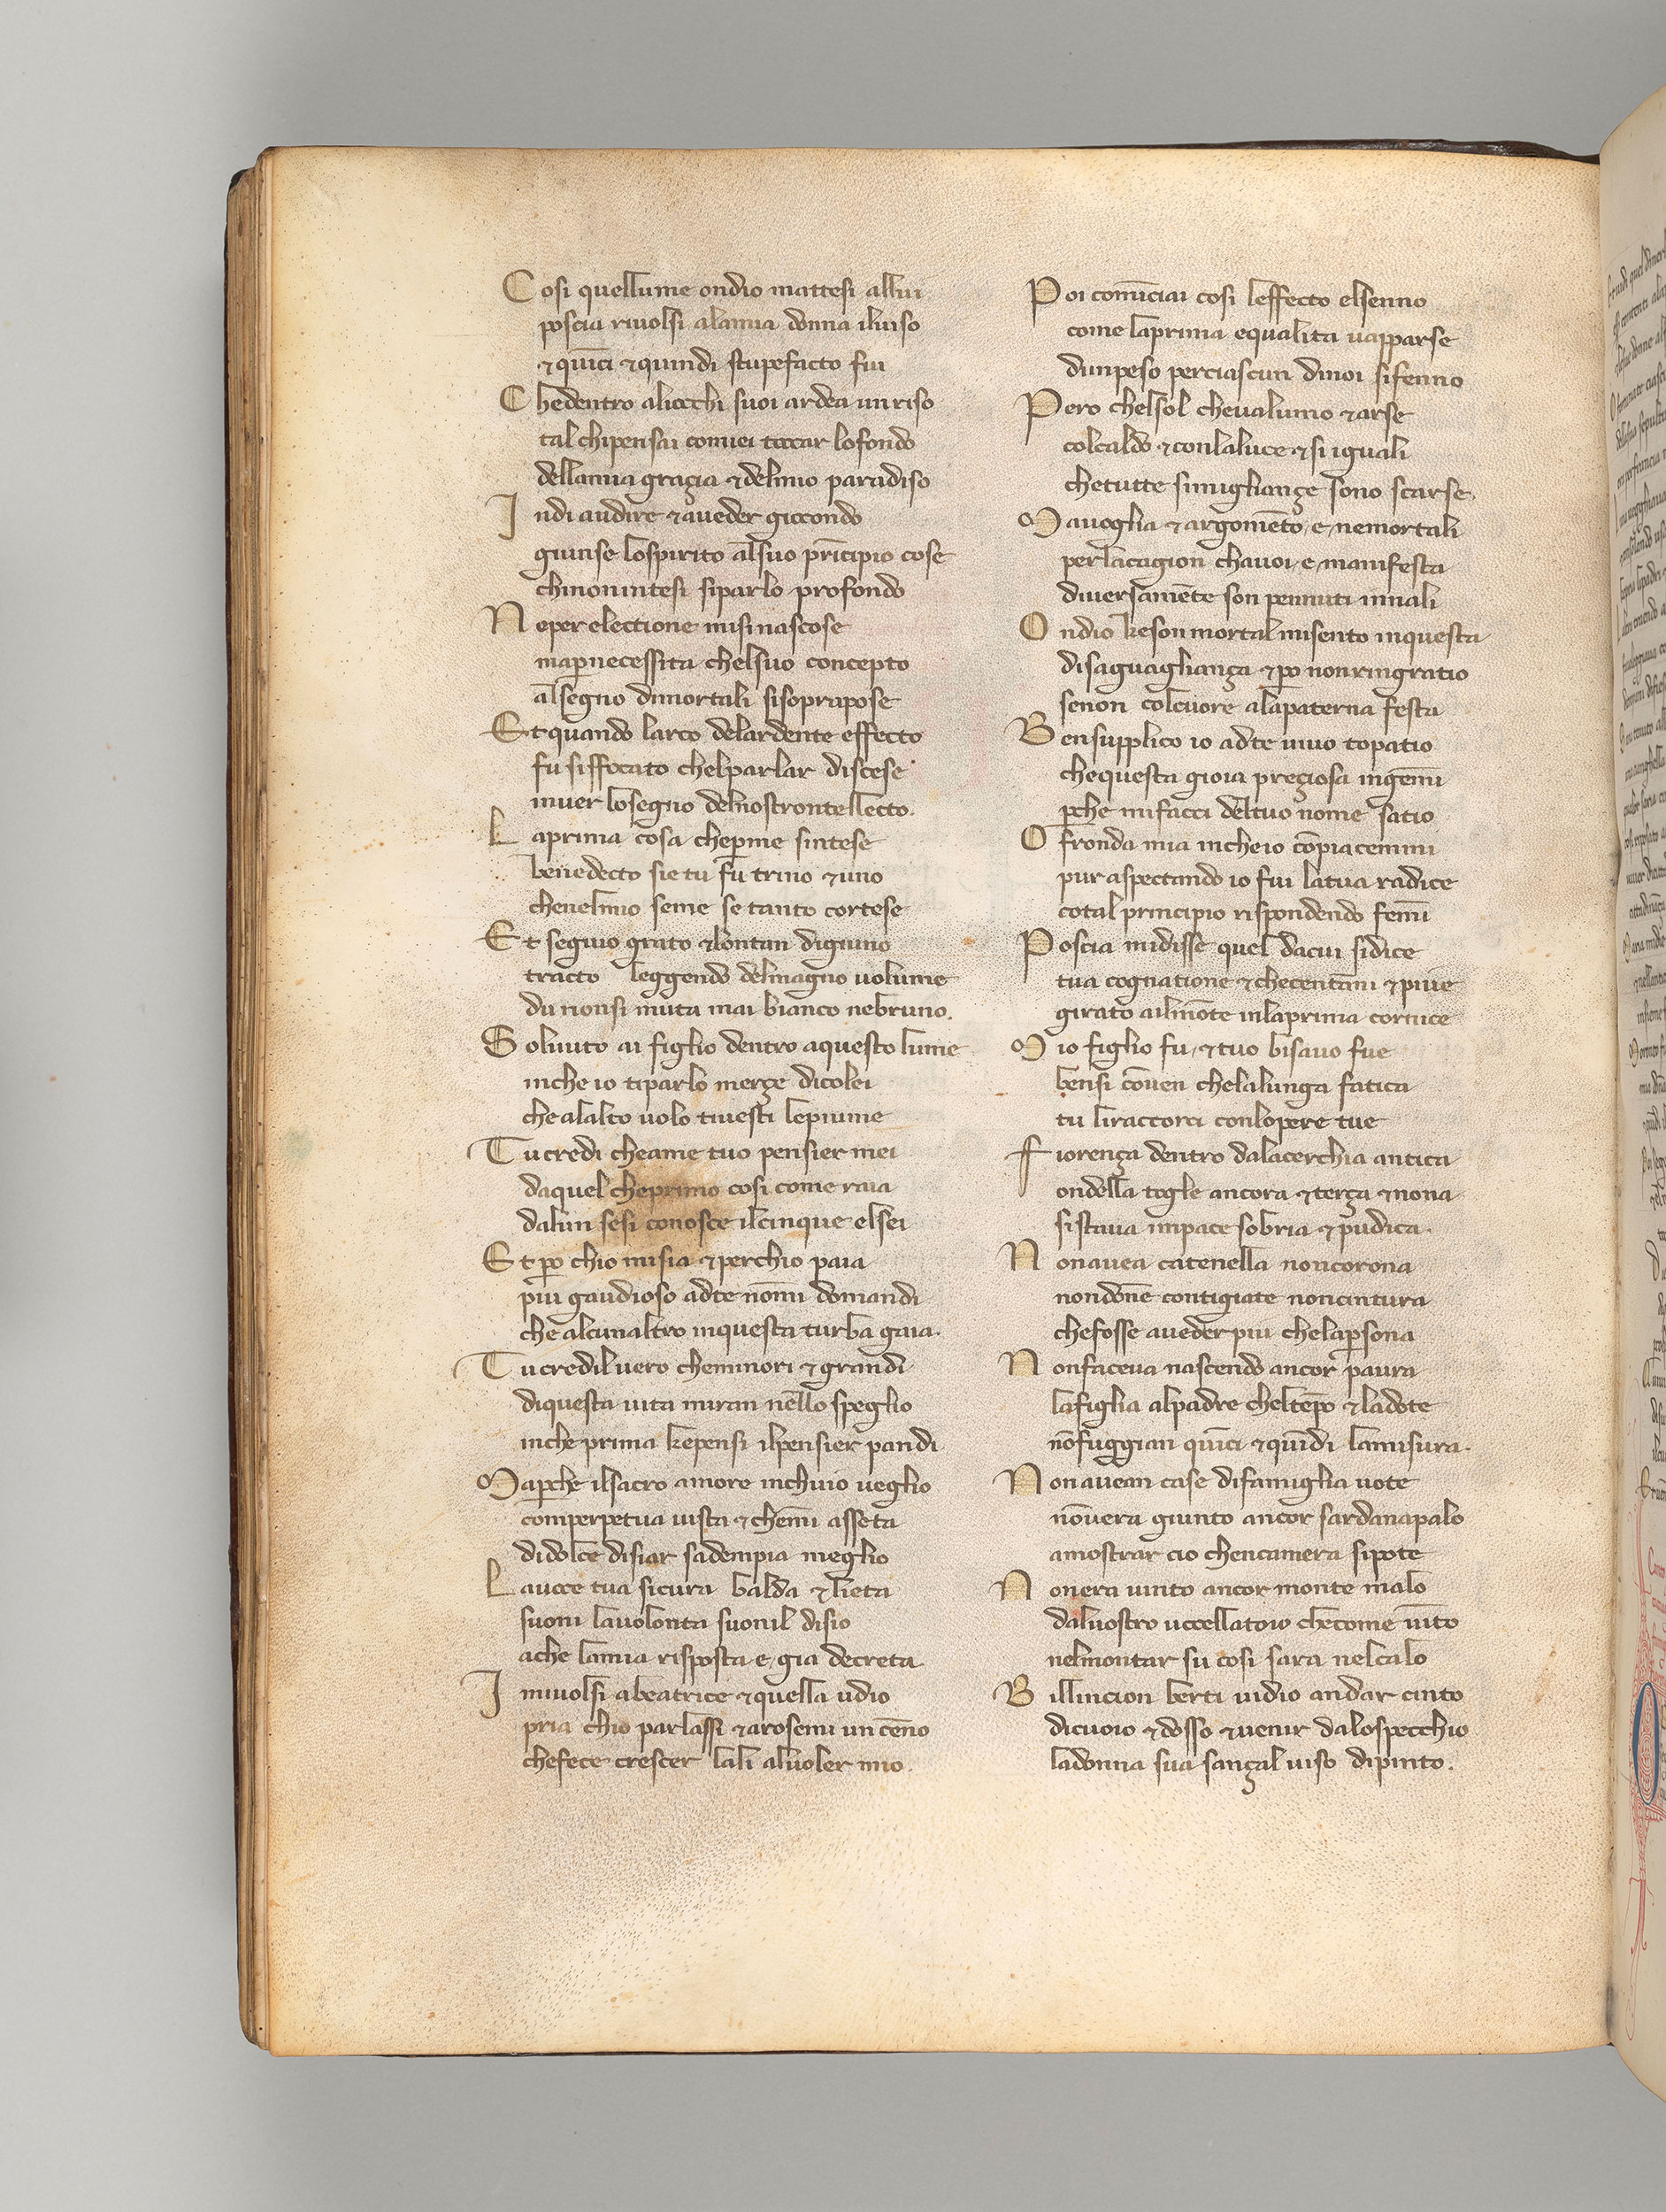 Cosi quellume ondio mattesi allui
poscia rivolsi alamia donna ilviso
⁊ quīci ⁊ quindi stupefacto fui
Chedentro aliocchi suoi ardea unriso
tal chipensai comiei toccar lofondo
dellamia graçia ⁊ delmio paradiso
Indi audire ⁊ aueder giocondo
giunse lospirito alsuo prīcipio cose
chinonintesi siparlo profondo
Neper electione misinascose
map̄necessita chelsuo concepto
alsegno dimortali sisoprapose
Et quando larco delardente effecto
fu siffocato chelparlar discese
inuer losegno delnostrontellecto.
Laprima cosa chep̄me sintese
benedecto sie tu fu trino ⁊ uno
chenelmio seme se tanto cortese
Et seguio grato ⁊ lontan digiuno
tracto leggendo delmagno uolume
du nonsi muta mai bianco nebruno.
Soluuto ai figlio dentro aquesto lume
inche io tiparlo merçe dicolei
che alalto uolo tiuesti lepiume
Tu credi cheame tuo pensier mei
daquel cheprimo cosi come raia
dalun sesi conosce ilcinque elsei
Et p̄o chio misia ⁊ perchio paia
piu gaudioso adte nōmi domandi
che alcunaltro inquesta turba gaia.
Tu credil uero cheminori ⁊ grandi
diquesta uita miran nello speglio
inche prima kepensi ilpensier pandi
Map̄che ilsacro amore inchuio ueglio
comperpetua uista ⁊ chemi asseta
didolce disiar sadempia meglio
Lauoce tua sicura balda ⁊ lieta
suoni lauolonta suonil disio
ache lamia risposta e gia decreta
I miuolsi abeatrice ⁊ quella udio
pria chio parlassi ⁊ arosemi un cēno
chefece crescer lali aluoler mio.
Poi comīciai cosi leffecto elsenno
come laprima equalita uapparse
dunpeso perciascun dinoi sifenno
Pero chelsol cheualumo ⁊ arse
colcaldo ⁊ conlaluce ⁊ si iguali
chetutte simigliançe sono scarse.
Mauoglia ⁊ argomēto e nemortali
perlacagion chauoi e manifesta
diuersamēte son pennuti inuali
Ondio keson mortal misento inquesta
disaguaglianza ⁊ p̄o nonringratio
senon colcuore alapaterna festa
Bensupplico io adte uiuo topatio
chequesta gioia preçiosa ingemi
p̄che mifacci deltuo nome satio
O fronda mia incheio cōpiacemmi
pur aspectando io fui latua radice
cotal principio rispondendo femi
Poscia midisse quel dacui sidice
tua cognatione ⁊ checentani ⁊ piue
girato ailmōte inlaprima cornice
Mio figlio fu ⁊ tuo bisauo fue
bensi cōuen chelalunga fatica
tu liraccorci conlopere tue
Fiorença dentro dalacerchia antica
ondella togle ancora ⁊ terça ⁊ nona
sistaua inpace sobria ⁊ pudica.
Nonauea catenella noncorona
nondōne contigiate noncintura
chefosse aueder piu chelap̄sona
Nonfaceua nascendo ancor paura
lafiglia alpadre cheltēpo ⁊ ladote
nōfuggian quīci ⁊ quīdi lamisura.
Nonauean case difamiglia uote
nōuera giunto ancor sardanapalo
amostrar cio chencamera sipote
Nonera uinto ancor monte malo
daluostro uccellatoio checome uīto
nelmontar su cosi sara nelcalo
Billincion berti uidio andar cinto
dicuoio ⁊ dosso ⁊ uenir dalospecchio
ladonna sua sançal uiso dipinto.